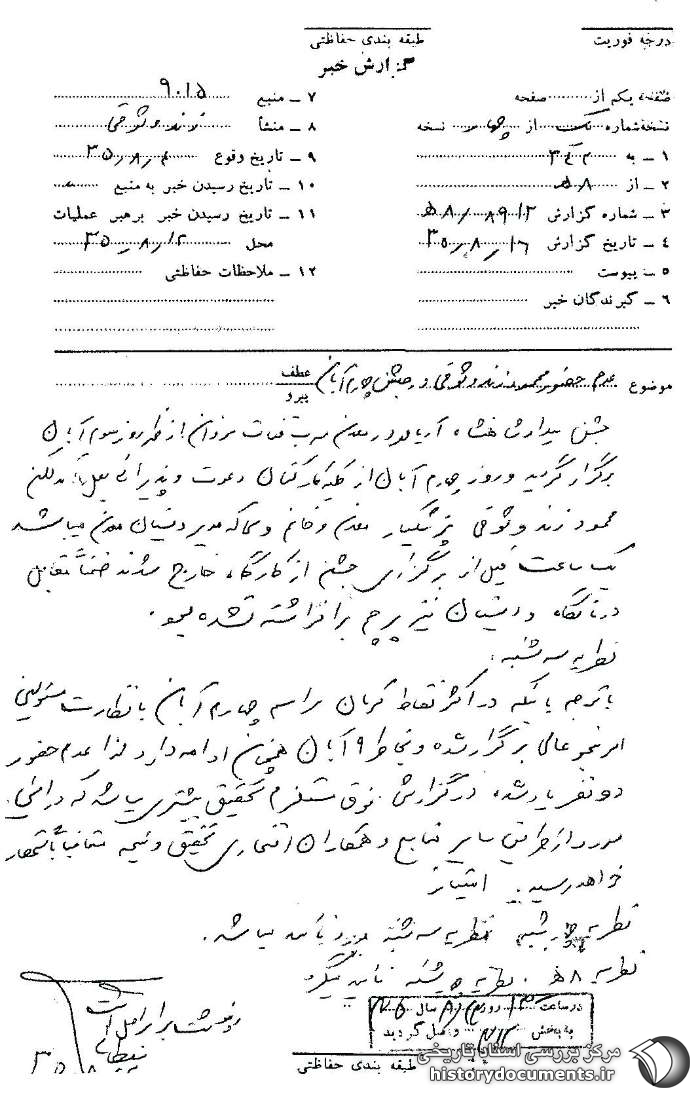 درجه فوریت
طبقه بندی حفاظتی
گزارش خبر
صفحه یکم از صفحه
نسخه شماره یک از چهار نسخه
۱ ـ به ۳۴۲
۲ ـ از ۸ﻫ
۳ ـ شماره گزارش ۸۹۱۲/ﻫ۸
۴ ـ تاریخ گزارش ۳۵/۸/۱۶
۵ ـ پیوست
۶ ـ گیرندگان خبر
۷ ـ منبع ۹۰۱۵
۸ ـ منشأ زند وثوقی
۹ ـ تاریخ وقوع ۳۵/۸/۴
۱۰ ـ تاریخ رسیدن خبر به منبع
۱۱ ـ تاریخ رسیدن خبر برهبر عملیات
محل ۳۵/۸/۱۲
۱۲ ـ ملاحظات حفاظتی
موضوع عدم حضور محمود زند وثوقی در جشن چهارم آبان
عطف
پیرو
جشن میلاد شاهنشاه آریامهر در معدن از ظهر روز سوم آبان
برگزار گردید و روز چهارم آبان از کلیه کارکنان دعوت و پذیرائی بعمل آمد لکن
محمود زند وثوقی معدن و خانم وی که مدیر دبستان معدن میباشد
یک ساعت قبل از برگزاری جشن از کارگاه خارج شدند ضمناً مقابل
درمانگاه و دبستان نیز پرچم برافراشته نشده بود.
نظریه سه شنبه.
با توجه باینکه در اکثر نقاط کرمان مراسم چهارم آبان با نظارت مسئولین
امر بنحو عالی برگزار شده و بخاطر ۹ آبان همچنان ادامه دارد لذا عدم حضور
دو نفر یاد شده در گزارش فوق مستلزم تحقیق بیشتری میباشد که در این
مورد از طریق سایر منابع و همکاران افتخاری تحقیق و نتیجه متعاقباً باستحضار
خواهد رسید. امتیاز
نظریه چهارشنبه. نظریه سه شنبه مورد تایید میباشد.
نظریه ۸ﻫ. نظریه چهارشنبه تایید میگردد
در ساعت روز سال
به بخش ۳۱۲ وصل گردید
طبقه بندی حفاظتی
مرکز بررسی اسناد تاریخی
historydocuments.ir